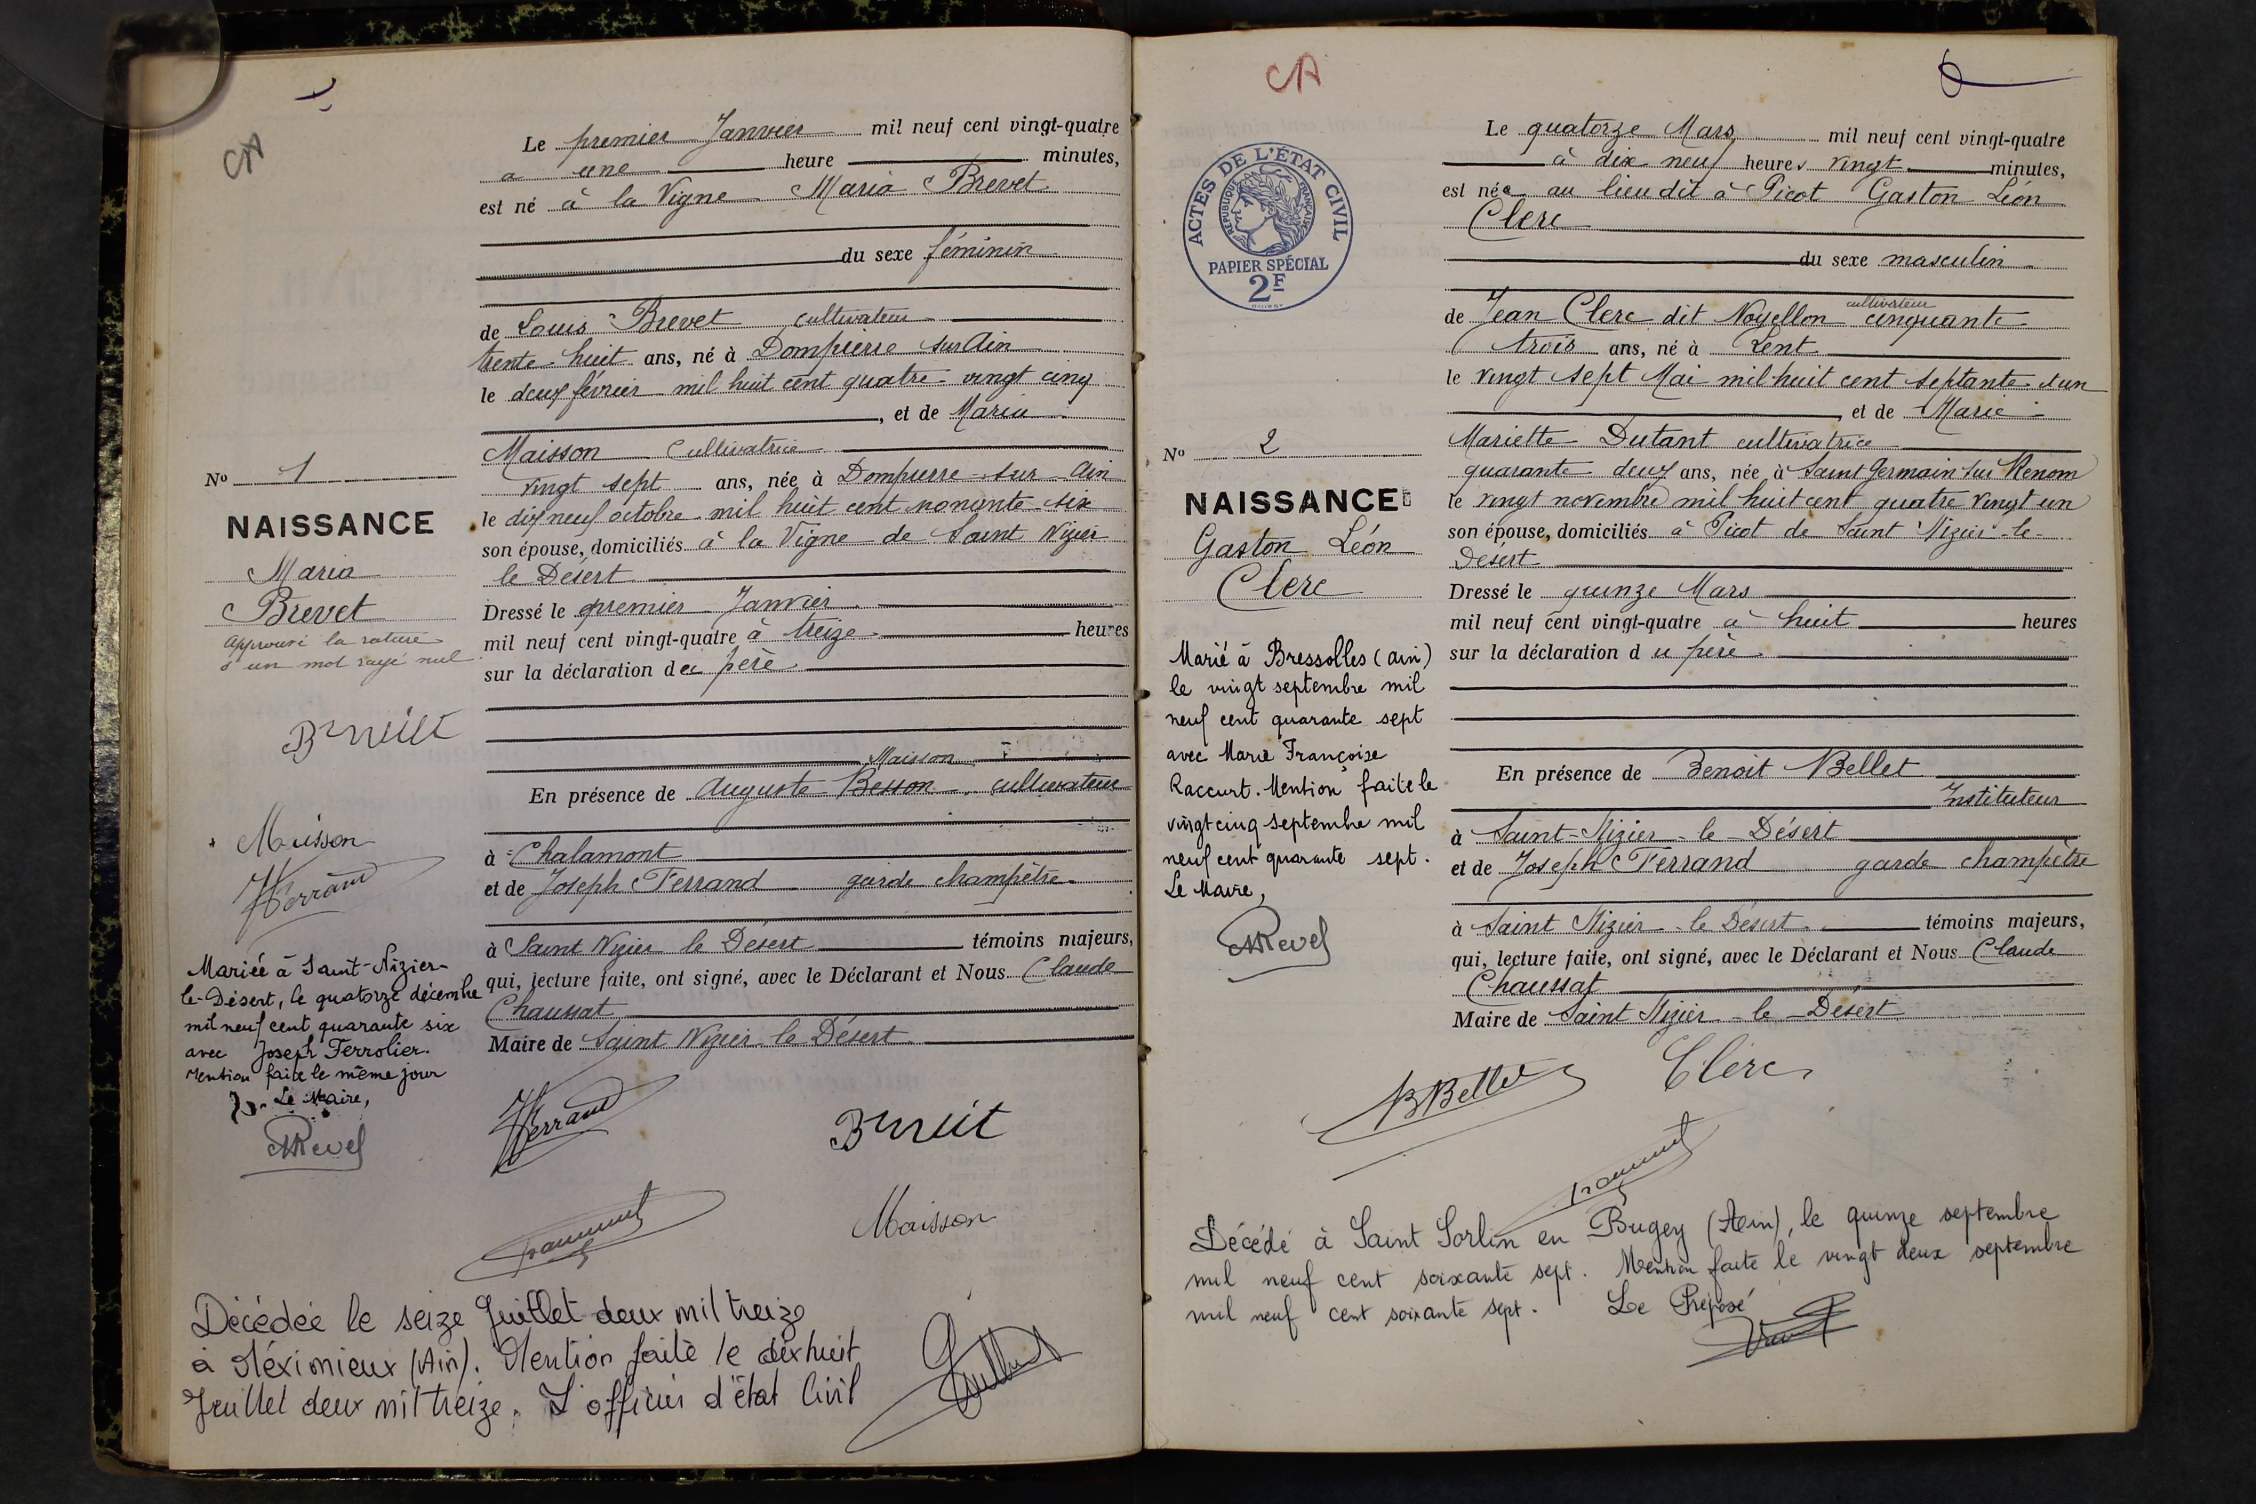 CA
Le premier Janvier mil neuf cent vingt-quatre
a une heure minutes,
est né à la Vigne Maria Brevet
du sexe féminin
de Louis Brevet cultivateur
trente huit ans, né à Dompierre sur Ain
le deux février mil huit cent quatre vingt cinq
, et de Maria
Maisson Cultivatrice
vingt sept ans, née à Dompierre-sur-Ain
le dix neuf octobre mil huit cent nonante six
son épouse, domiciliés à la Vigne de Saint Nizier
le Désert
Dressé le premier Janvier
mil neuf cent vingt-quatre à treize heures
sur la déclaration du père
Maisson
En présence de Auguste Besson cultivateur
à Chalamont
et de Joseph Ferrand garde champêtre
à Saint Nizier le Désert témoins majeurs,
qui, lecture faite, ont signé, avec le Déclarant et Nous Claude
Chaussat
Maire de Saint Nizier le Désert
No 1
NAISSANCE
Maria
Brevet
Approuvé la rature
d'un mot rayé nul
Brevet
Maisson
Ferrand
Mariée à Saint-Nizier-
le-Désert, le quatorze décembre
mil neuf cent quarante six
avec Joseph Ferrolier.
Mention faite le même jour
Le Maire,
Revel
Ferrand
Brevet
Maisson
Décédée le seize Juillet deux mil treize
à Méximieux (Ain). Mention faite le dix huit
Juillet deux mil treize. L'officier d'état Civil
CA
ACTES DE L'ÉTAT CIVIL
RÉPUBLIQUE FRANÇAISE
PAPIER SPÉCIAL
2F
Le quatorze Mars mil neuf cent vingt-quatre
à dix neuf heures vingt minutes,
est né au lieu dit à Picot Gaston Léon
Clerc
du sexe masculin
cultivateur
de Jean Clerc dit Noyellon cinquante
trois ans, né à Lent
le vingt sept Mai mil huit cent septante et un
, et de Marie
Mariette Dutant cultivatrice
quarante deux ans, née à Saint Germain sur Renom
le vingt novembre mil huit cent quatre vingt un
son épouse, domiciliés à Picot de Saint Nizier-le-
Désert
Dressé le quinze Mars
mil neuf cent vingt-quatre à huit heures
sur la déclaration du père
En présence de Benoit Bellet
Instituteur
à Saint-Nizier-le-Désert
et de Joseph Ferrand garde champêtre
à Saint Nizier-le Désert témoins majeurs,
qui, lecture faite, ont signé, avec le Déclarant et Nous Claude
Chaussat
Maire de Saint Nizier-le-Désert
No 2
NAISSANCE
Gaston Léon
Clerc
Marié à Bressolles (Ain)
le vingt septembre mil
neuf cent quarante sept
avec Marie Françoise
Raccurt. Mention faite le
vingt cinq septembre mil
neuf cent quarante sept.
Le Maire,
Revel
BBellet
Clerc
Décédé à Saint Sorlin en Bugey (Ain), le quinze septembre
mil neuf cent soixante sept. Mention faite le vingt deux septembre
mil neuf cent soixante sept. Le Préposé